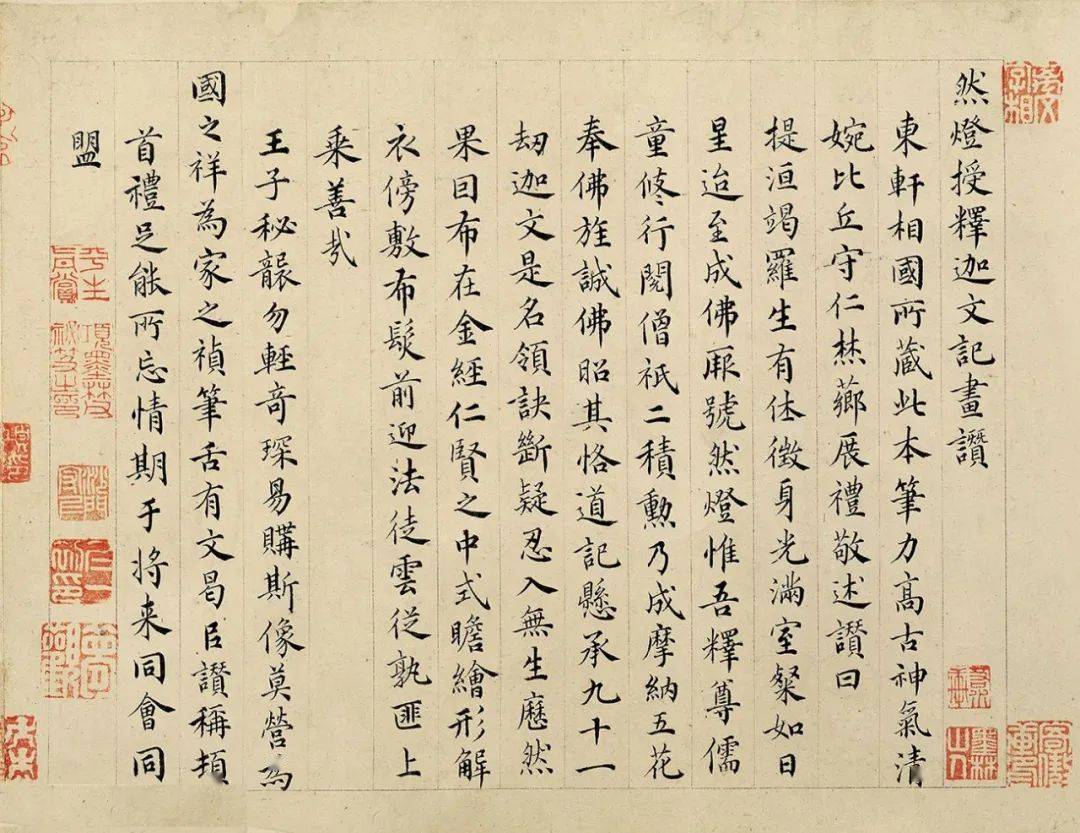 然燈授釋迦文記畫讚
東軒相國所藏此本筆力高古神氣清
婉比丘守仁爇薌展禮敬述讚曰
提洹竭羅生有休徵身光滿室粲如日
星迨至成佛厥號然燈惟吾釋尊儒
童修行閱僧祇二積勲乃成摩納五花
奉佛旌誠佛昭其恪道記懸承九十一
劫迦文是名領訣斷疑忍入無生歷然
果因布在金經仁賢之中式瞻繪形解
衣傍敷布髮前迎法徒雲從孰匪上
乘善哉
王子秘襲勿輕奇琛易購斯像莫營為
國之祥為家之禎筆舌有文曷臣讚稱頓
首禮足能所忘情期于將来同會同
盟
平生真賞
項墨林父秘笈之印